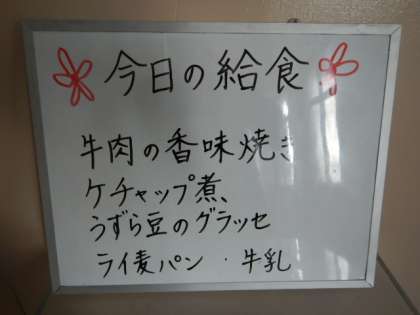 今日の給食
牛肉の香味焼き
ケチャップ煮、
うずら豆のグラッセ
ライ麦パン ・ 牛乳